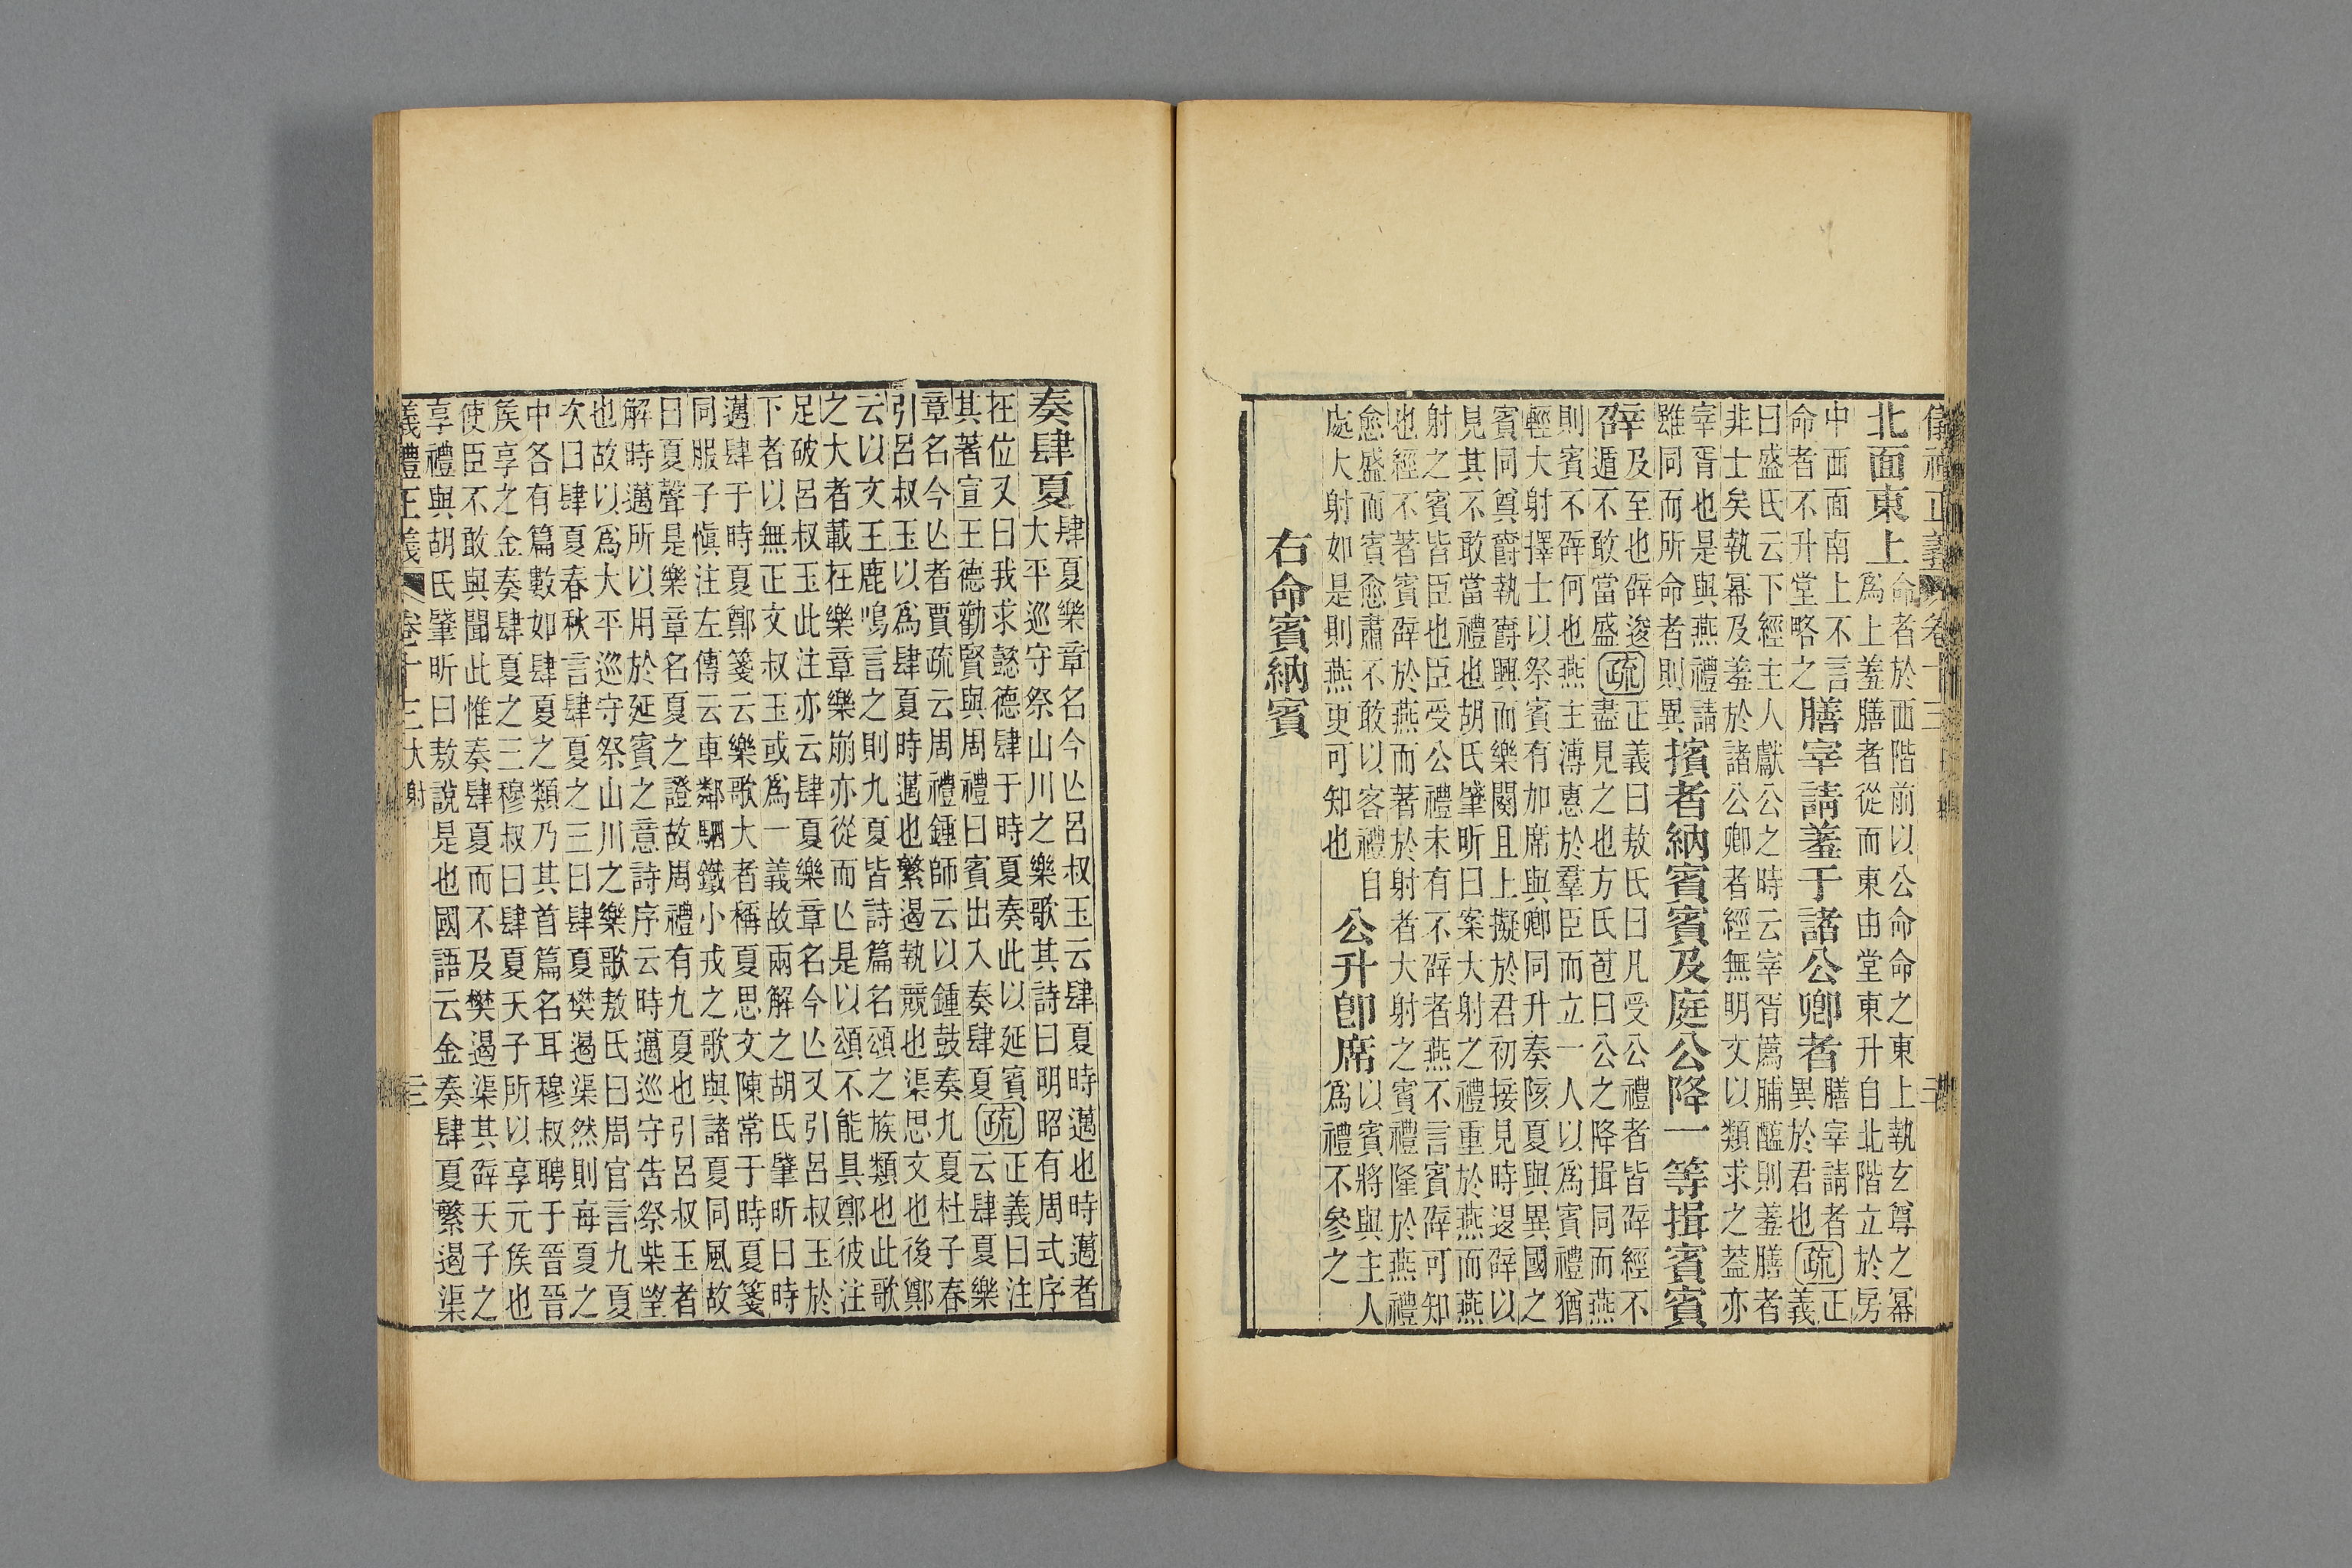 儀禮正義 卷十三 三
北面東上
命者於西階前以公命命之東上執玄尊之冪
爲上羞膳者從而東由堂東升自北階立於房
中西面南上不言
命者不升堂略之
膳宰請羞于諸公卿者
膳宰請者
異於君也
疏
正
義
曰盛氏云下經主人獻公之時云宰胥薦脯醢則羞膳者
非士矣執冪及羞於諸公卿者經無明文以類求之葢亦
宰胥也是與燕禮請
雖同而所命者則異
擯者納賓賓及庭公降一等揖賓賓
辟
及至也辟逡
遁不敢當盛
疏
正義曰敖氏曰凡受公禮者皆辟經不
盡見之也方氏苞曰公之降揖同而燕
則賓不辟何也燕主溥惠於羣臣而立一人以爲賓禮猶
輕大射擇士以祭賓有加席與卿同升奏陔夏與異國之
賓同奠爵執爵興而樂闋且上擬於君初接見時遽辟以
見其不敢當禮也胡氏肇昕曰案大射之禮重於燕而燕
射之賓皆臣也臣受公禮未有不辟者燕不言賓辟可知
也經不著賓辟於燕而著於射者大射之賓禮隆於燕禮
愈盛而賓愈肅不敢以客禮自
處大射如是則燕更可知也
公升卽席
以賓將與主人
爲禮不參之
右命賓納賓
奏肆夏
肆夏樂章名今亾呂叔玉云肆夏時邁也時邁者
大平巡守祭山川之樂歌其詩曰明昭有周式序
在位又曰我求懿德肆于時夏奏此以延賓
其著宣王德勸賢與周禮曰賓出入奏肆夏
疏
正義曰注
云肆夏樂
章名今亾者賈疏云周禮鍾師云以鍾鼓奏九夏杜子春
引呂叔玉以爲肆夏時邁也繁遏執競也渠思文也後鄭
云以文王鹿鳴言之則九夏皆詩篇名頌之族類也此歌
之大者載在樂章樂崩亦從而亾是以頌不能具鄭彼注
足破呂叔玉此注亦云肆夏樂章名今亾又引呂叔玉於
下者以無正文叔玉或爲一義故兩解之胡氏肇昕曰時
邁肆于時夏鄭箋云樂歌大者稱夏思文陳常于時夏箋
同服子愼注左傳云車鄰駟鐵小戎之歌與諸夏同風故
曰夏聲是樂章名夏之證故周禮有九夏也引呂叔玉者
解時邁所以用於延賓之意詩序云時邁巡守告祭柴望
也故以爲大平巡守祭山川之樂歌敖氏曰周官言九夏
次曰肆夏春秋言肆夏之三曰肆夏樊遏渠然則每夏之
中各有篇數如肆夏之類乃其首篇名耳穆叔聘于晉晉
矦享之金奏肆夏之三穆叔曰肆夏天子所以享元矦也
使臣不敢與聞此惟奏肆夏而不及樊遏渠其辟天子之
享禮與胡氏肇昕曰敖說是也國語云金奏肆夏繁遏渠
義禮正義 卷十三大射 三